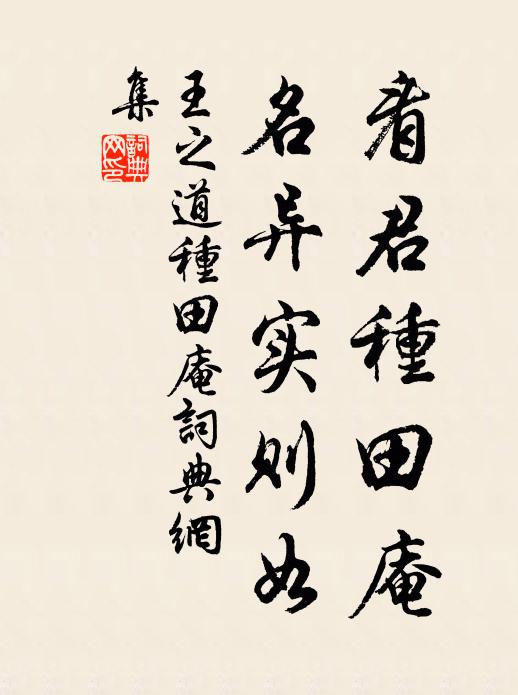 看君種田庵
名异实则如
王之道種田庵詞典網
集
詞典网印